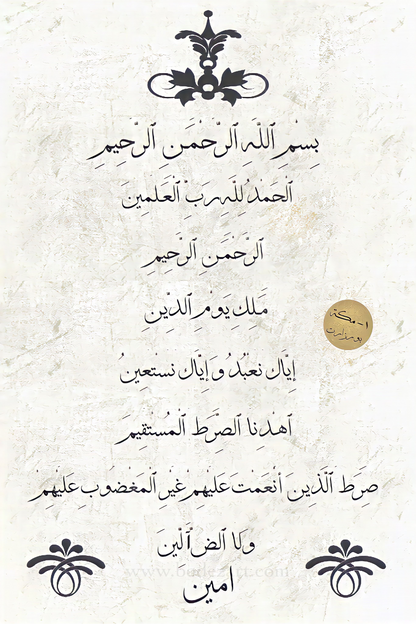 بِسْمِ ٱللَّهِ ٱلرَّحْمَٰنِ ٱلرَّحِيمِ
ٱلْحَمْدُ لِلَّهِ رَبِّ ٱلْعَٰلَمِينَ
ٱلرَّحْمَٰنِ ٱلرَّحِيمِ
مَٰلِكِ يَوْمِ ٱلدِّينِ
إِيَّاكَ نَعْبُدُ وَإِيَّاكَ نَسْتَعِينُ
ٱهْدِنَا ٱلصِّرَٰطَ ٱلْمُسْتَقِيمَ
صِرَٰطَ ٱلَّذِينَ أَنْعَمْتَ عَلَيْهِمْ غَيْرِ ٱلْمَغْضُوبِ عَلَيْهِمْ
وَلَا ٱلضَّآلِّينَ
امین
١- مكة